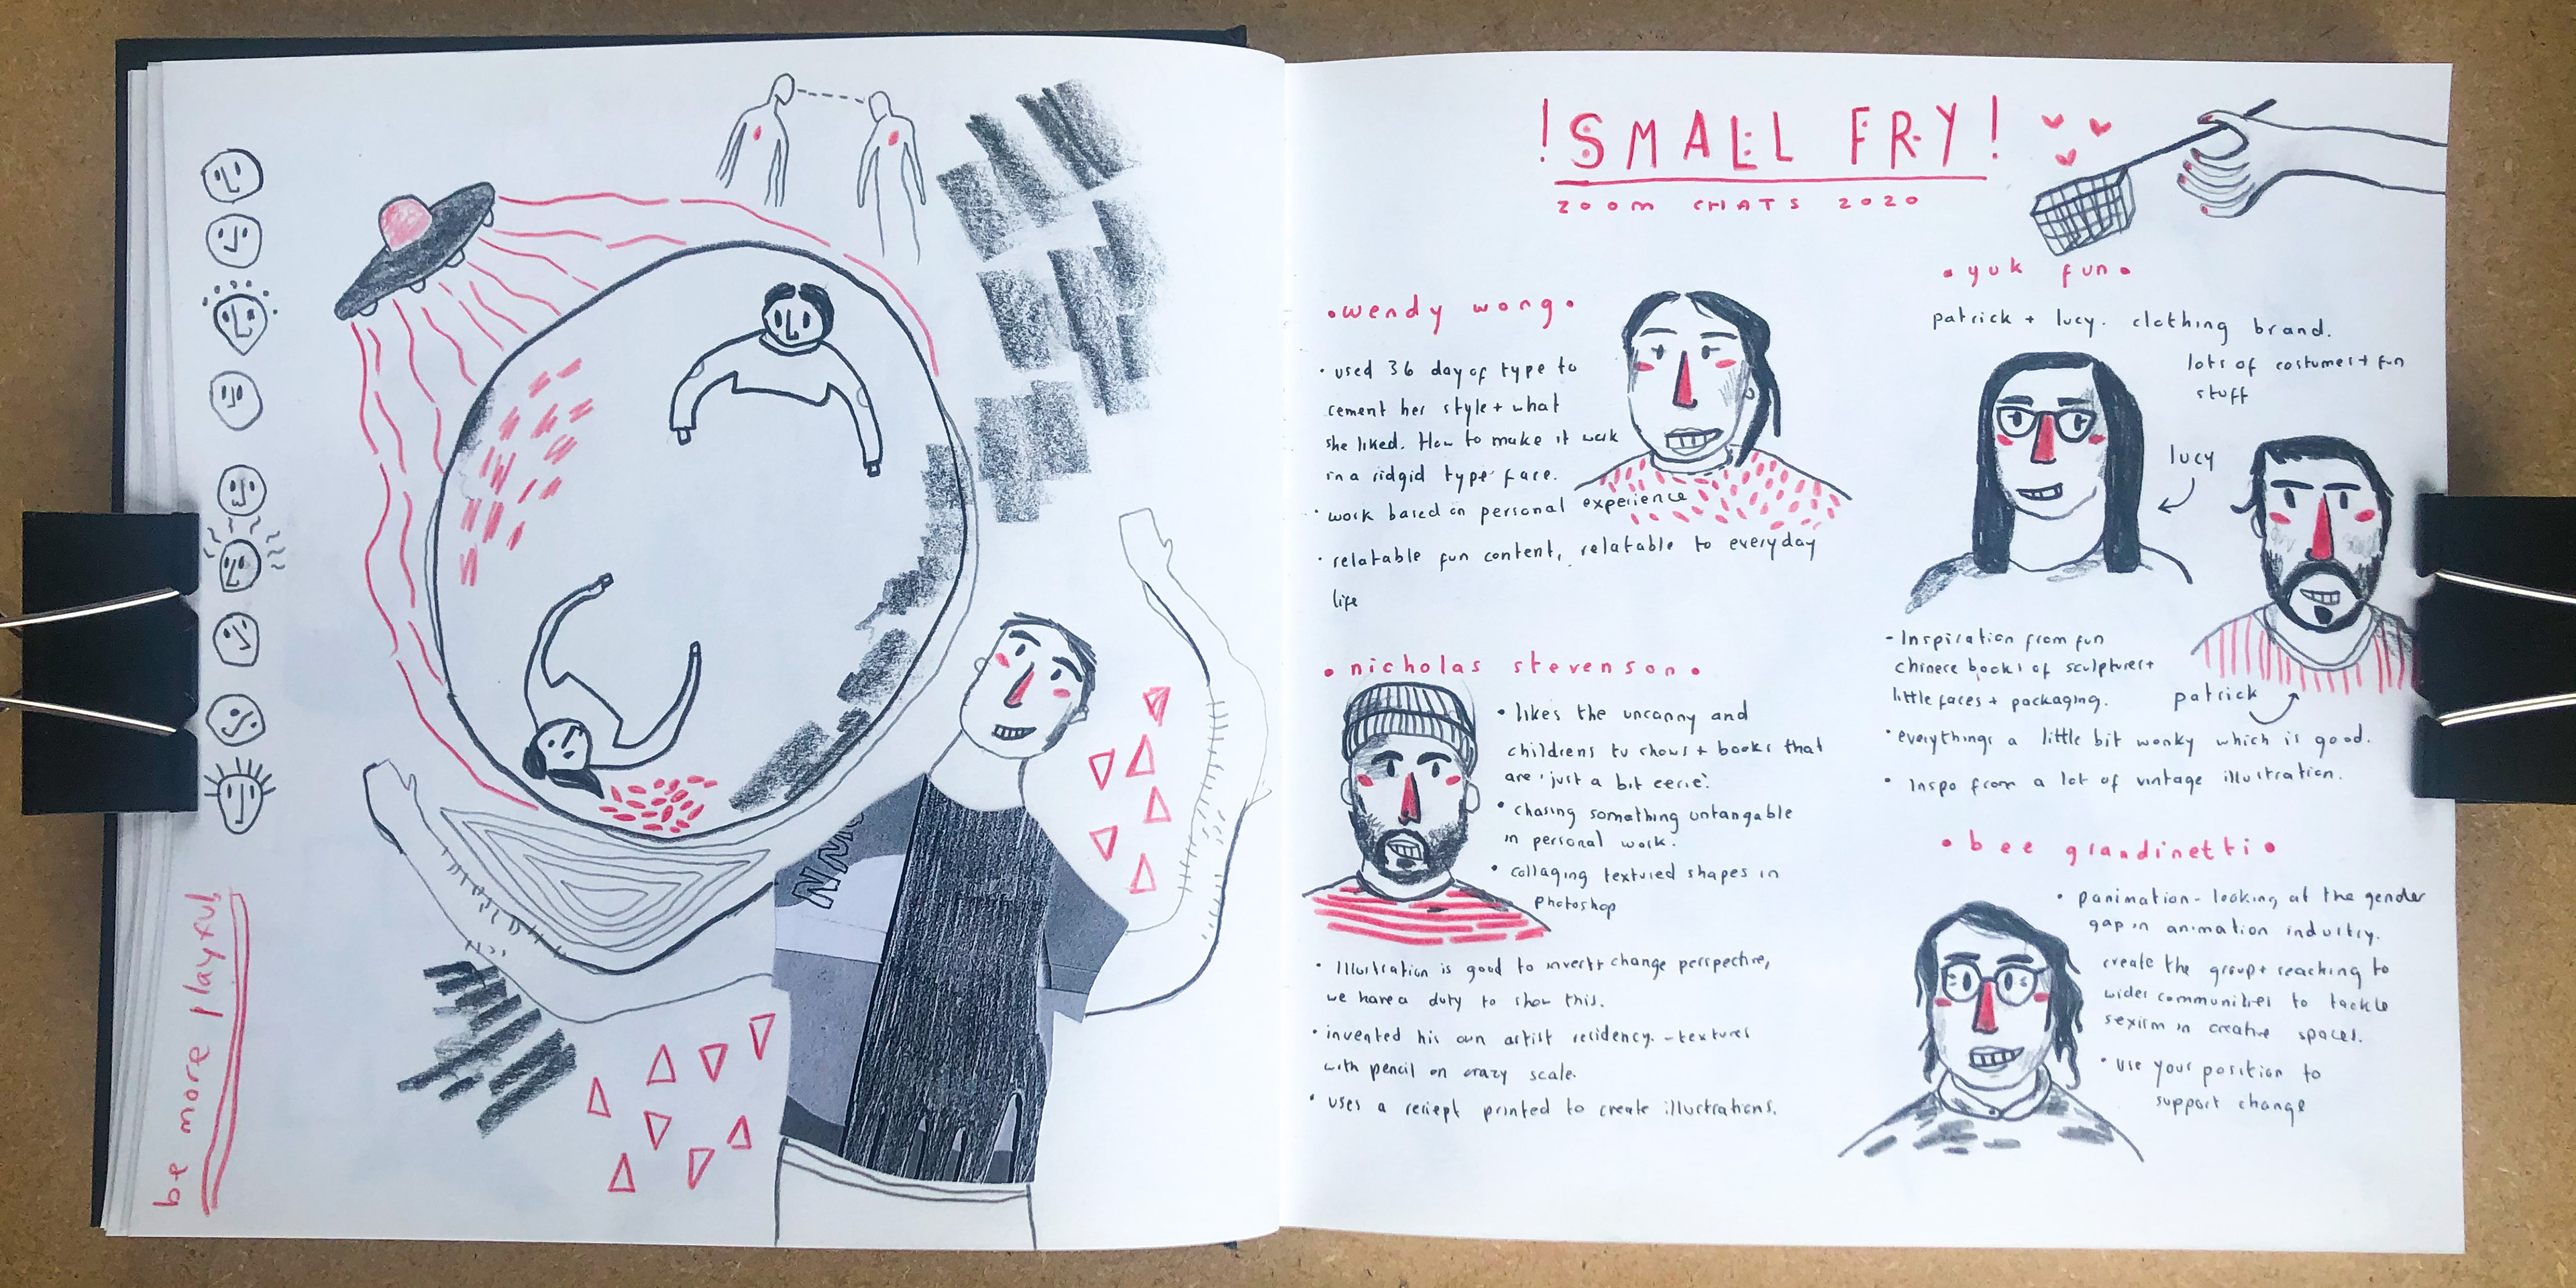 be more playful
! SMALL FRY !
zoom CHATS 2020
• wendy wong •
• used 36 day of type to
cement her style + what
she liked. How to make it work
in a ridgid type face.
• work based on personal experience
• relatable fun content, relatable to everyday
life
• nicholas stevenson •
• likes the uncanny and
childrens tv shows + books that
are 'just a bit eerie'.
• chasing something untangable
in personal work.
• collaging textured shapes in
photoshop
• Illustration is good to invert + change perspective,
we have a duty to show this.
• invented his own artist residency. - textures
with pencil on crazy scale.
• uses a reciept printed to create illustrations.
• yuk fun •
patrick + lucy. clothing brand.
lots of costumes + fun
stuff
lucy
- Inspiration from fun
chinese books of sculptures +
little faces + packaging.
patrick
• everythings a little bit wonky which is good.
• Inspo from a lot of vintage illustration.
• bee grandinetti •
• panimation - looking at the gender
gap in animation industry.
create the group + reaching to
wider communities to tackle
sexism in creative spaces.
• use your position to
support change